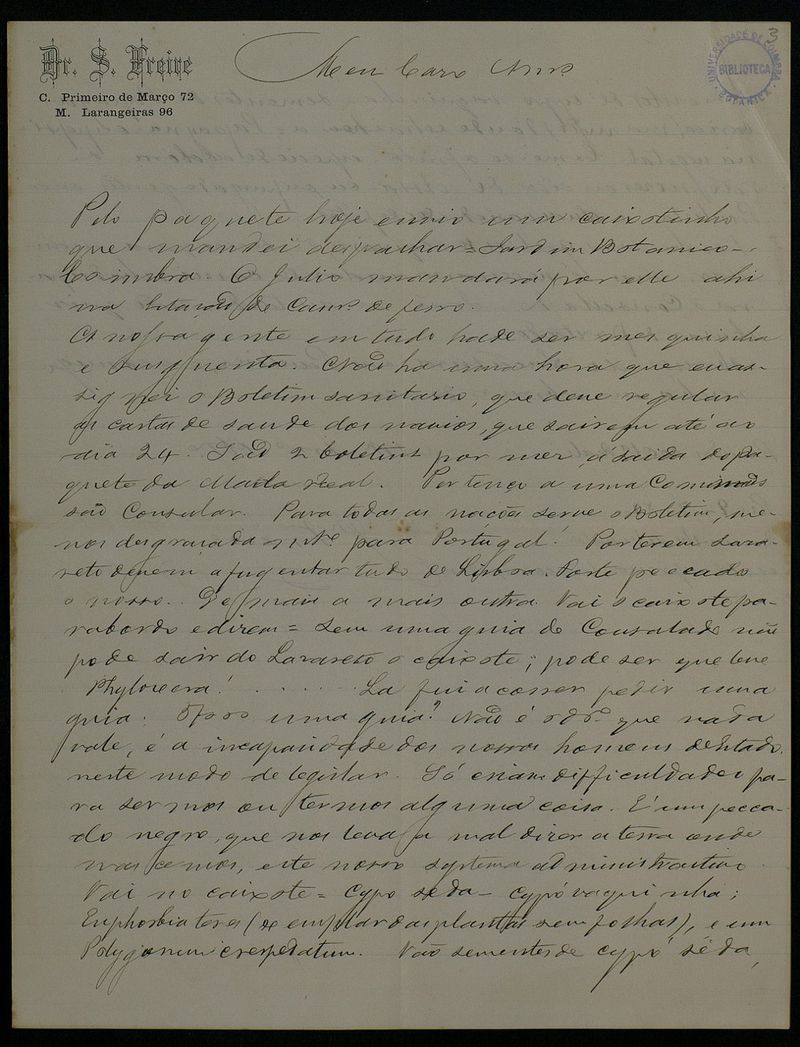 Dr. S. Freire
C. Primeiro de Março 72
M. Larangeiras 96
3
UNIVERSIDADE DE COIMBRA
BIBLIOTECA
BOTANICA
Meu Caro
Pelo paquete hoje envio um caixotinho
que mandei despachar = Jardim Botanico –
Coimbra O Julio mandará por elle ahi
na de de ferro.
A nossa gente em tudo hade ser mesquinha
e Não ha uma hora que eu as-
signei o Boletim sanitario, que deve regular
as cartas de saude dos navios, que sairem até ao
dia 24. São 2 boletins por mez, a saida do pa-
quete da Mala Real. Pertenço a uma Commis-
são Consular. Para todas as nações serve o Boletim, me-
nos desgraçada mte para Portugal! Por terem Laza-
reto devem afugentar tudo de Lisboa. Forte peccado
o nosso. De mais a mais outra. Vai o caixote pa-
ra bordo e dizem = sem uma guia do Consulado não
pode sair do Lazareto o caixote; pode ser que leve
Phyloxera! . . . . . . La fui a correr pedir uma
guia. uma guia? Não é o que nada
vale, é a incapacidade dos nossos homens
neste modo de legislar. Só criam difficuldades pa-
ra sermos ou termos alguma coisa. É um pecca-
do negro, que nos leva a mal dizer a terra onde
nascemos, este nosso systema administrativo
Vai no caixote = Cypo seda – cypó vaquinha;
Euphorbia (exemplar das plantas sem folhas), e um
Polygonum Vão sementes de cypó sêda,